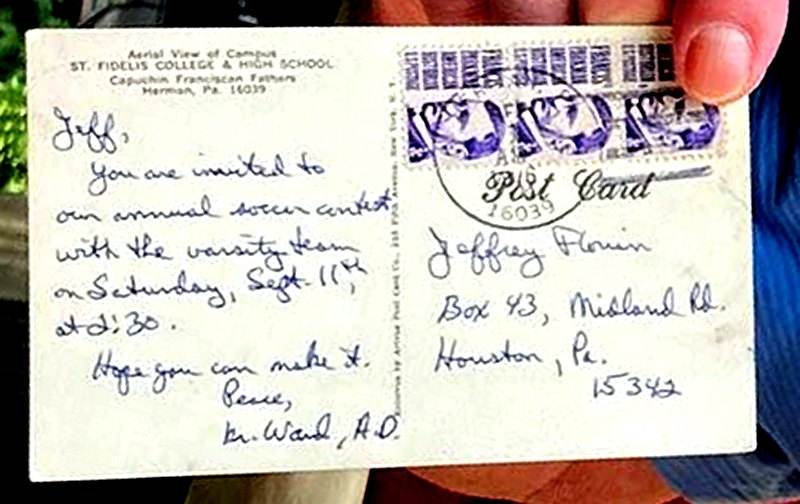 Aerial View of Campus
ST. FIDELIS COLLEGE & HIGH SCHOOL
Capuchin Franciscan Fathers
Herman, Pa. 16039
Jeff,
You are invited to
our annual soccer contest
with the varsity team
on Saturday, Sept. 11th,
at 2:30.
Hope you can make it.
Peace,
Mr. Ward, A.D.
Post Card
16039
Jeffrey
Box 43, Midland Rd.
Houston, Pa.
15342